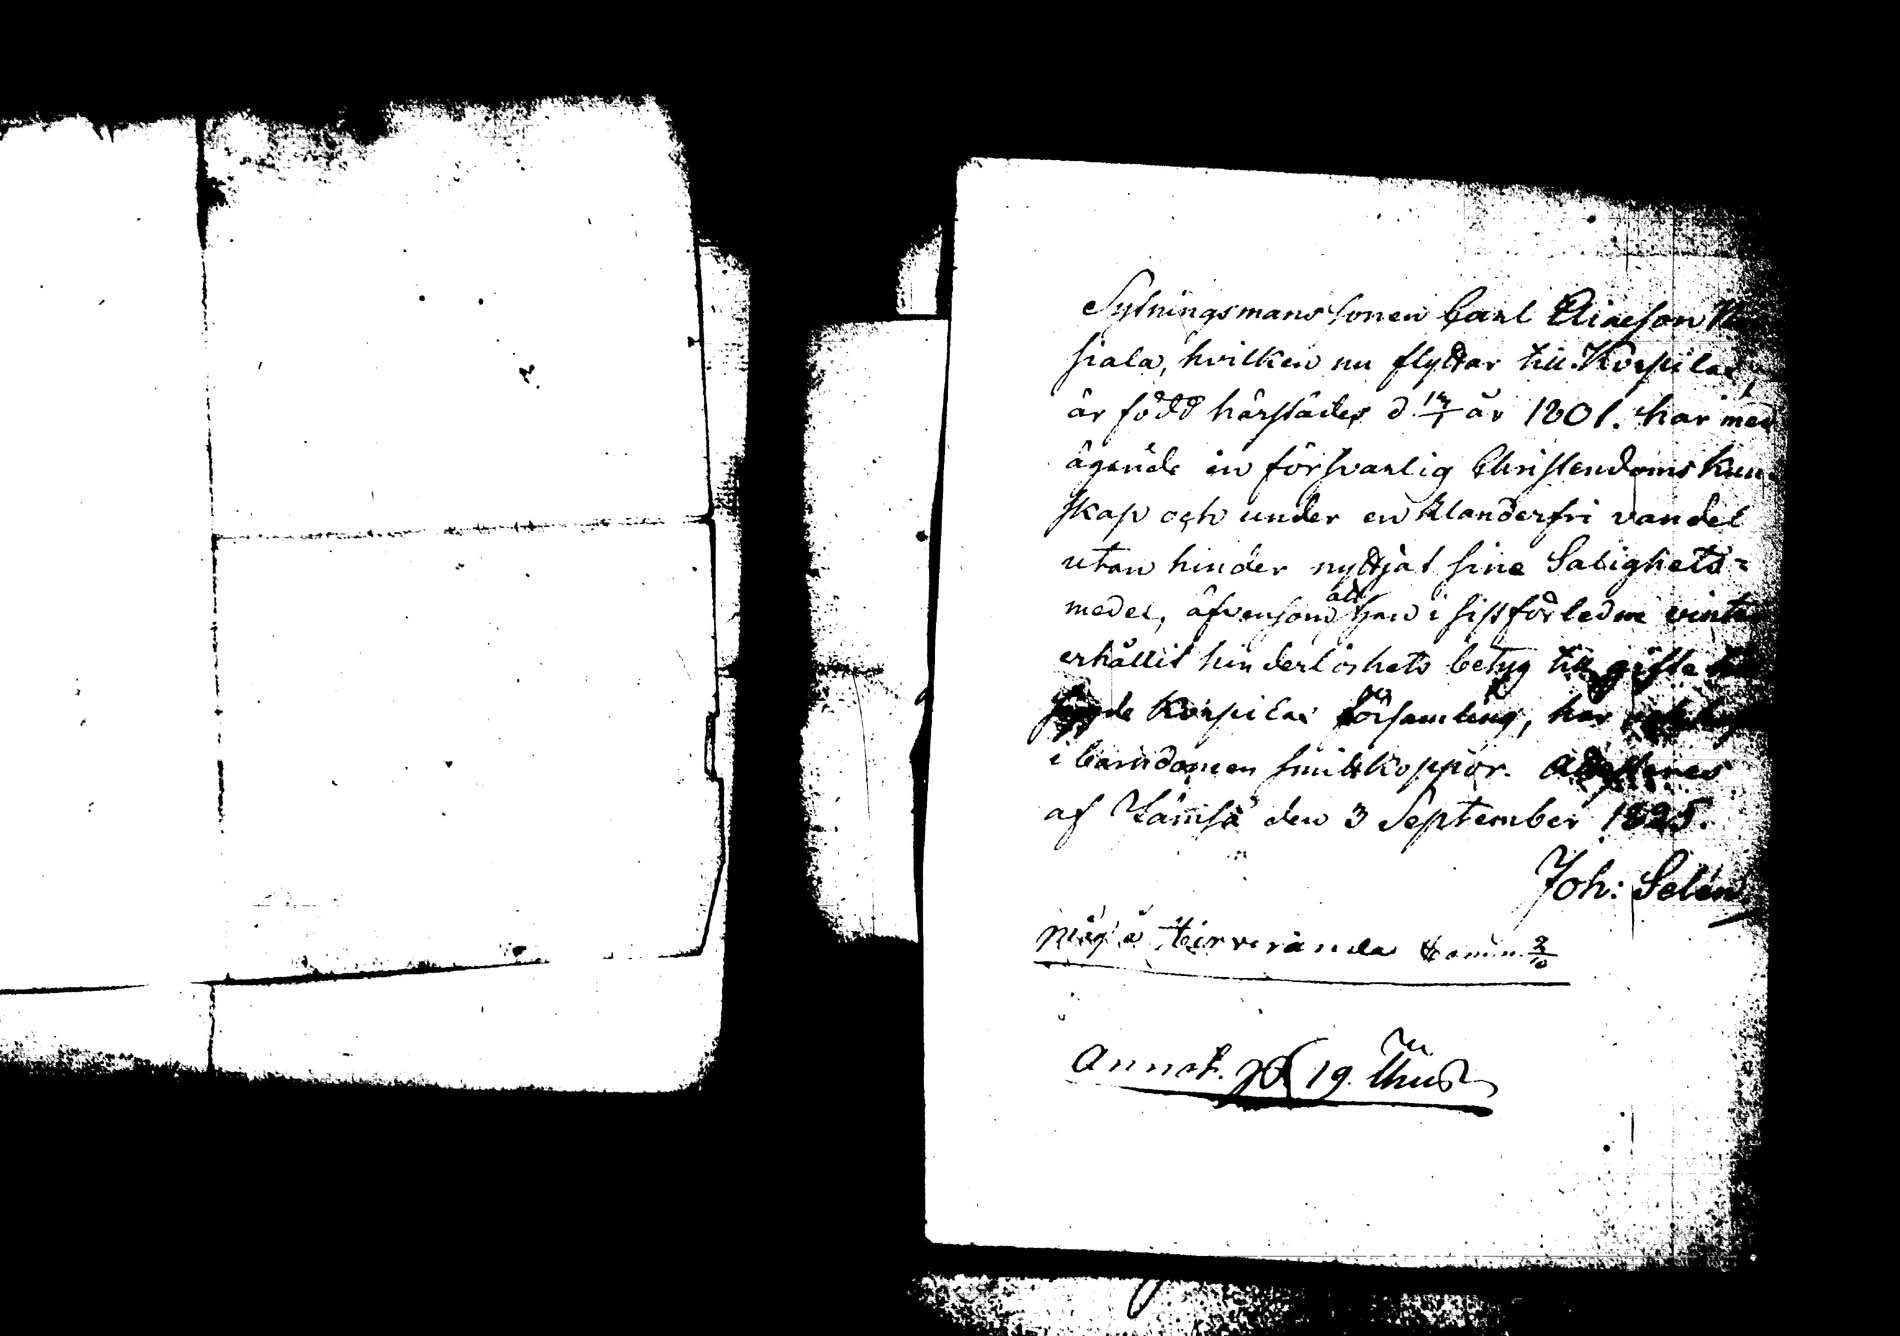 Sytningsmans sonen Carl Eliaeson
siala, hvilken nu flyttar till Korpilax,
är född härstädes d 17/7 år 1801. har med
ägande en försvarlig Christendoms kun
skap och under en klanderfri vandel
utan hinder nyttjat sine Salighets=
medel, äfvensom att han i sistförledne vinter
erhållit hinderlöshets betyg till gifte
Korpilax församling, har
i barndomen smittkoppor. Attesteres
af Jämsä den 3 September 1825.
Joh: Selén
2/10
Annot. 19.